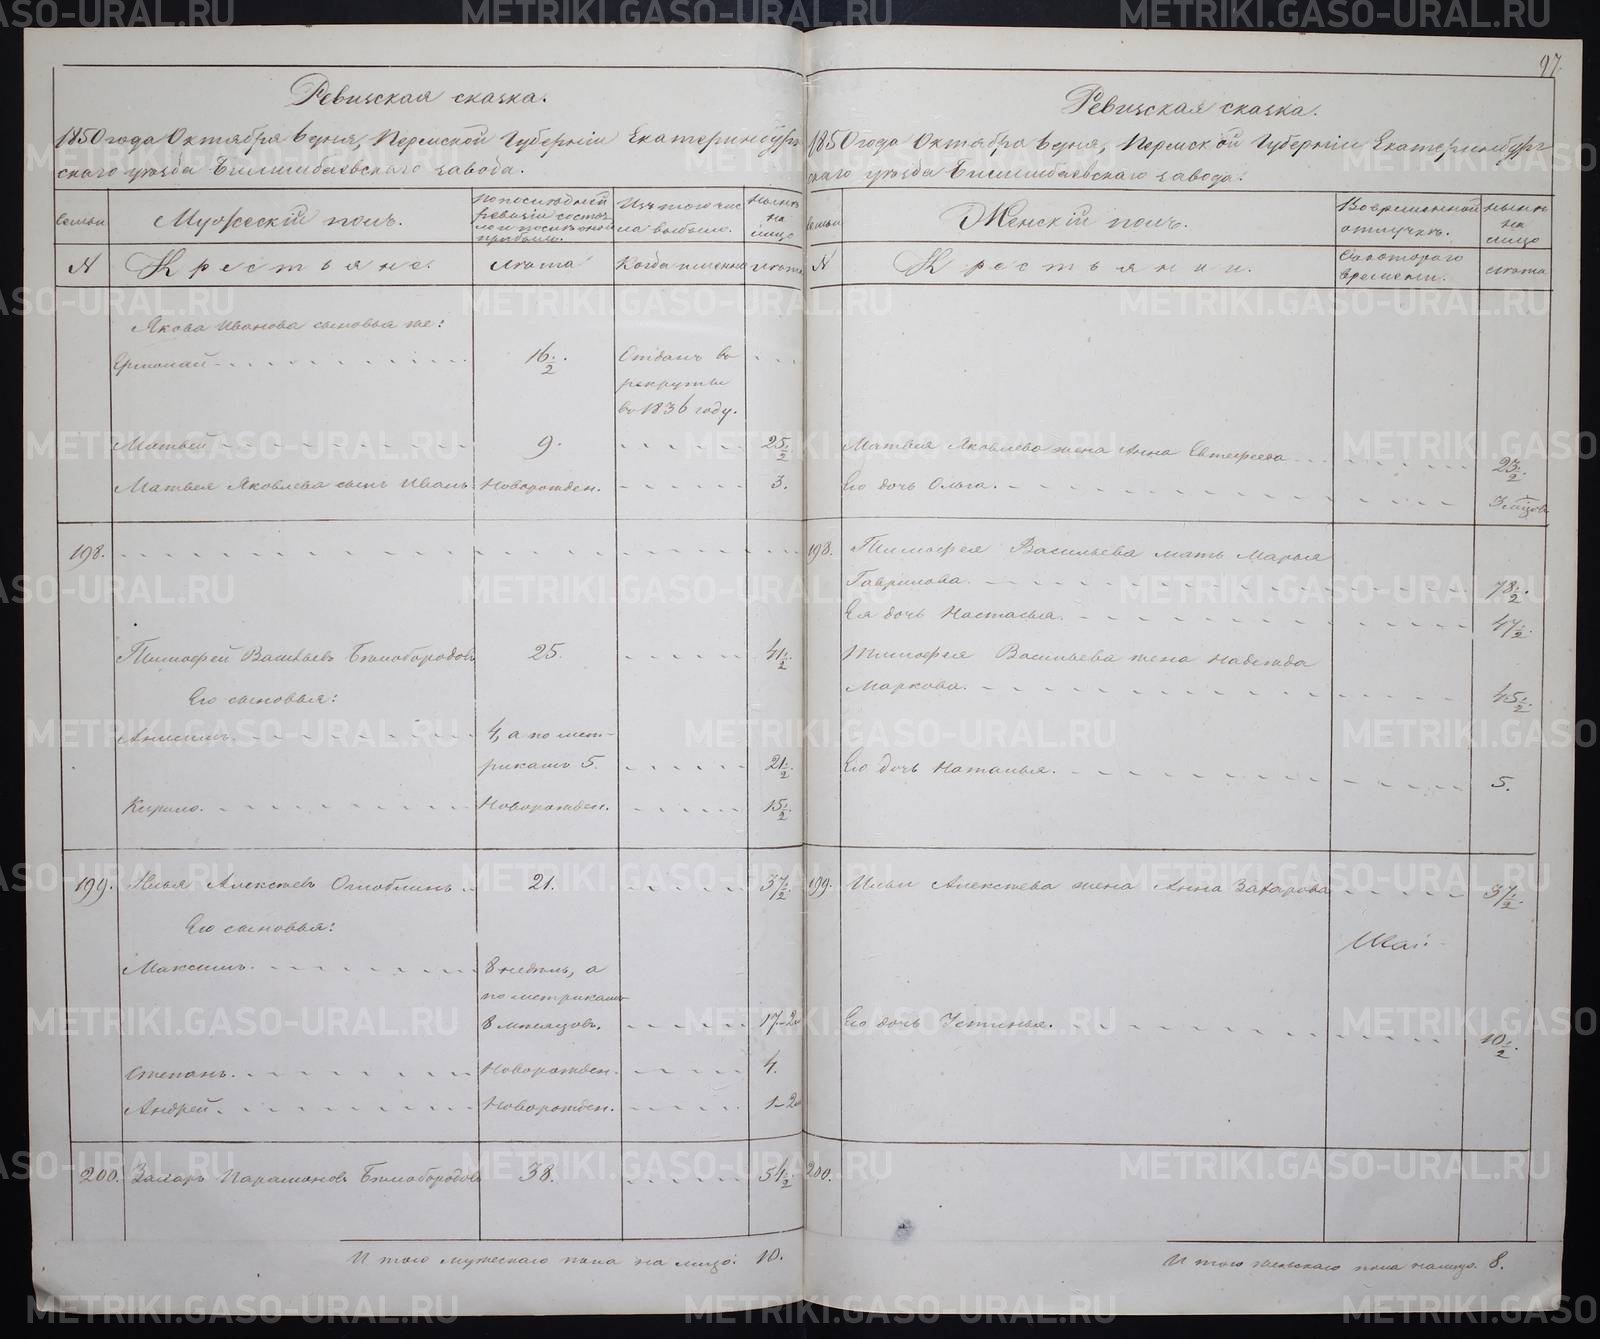 97.
Ревизская сказка.
1850 года Октября 6 дня, Пермской Губерніи Екатеринбург-
скаго уѣзда Билимбаевскаго завода.
Семьи
Мужескій полъ.
По последней ревизіи состояло и после оной прибыло.
Изъ того числа выбыло.
Нынѣ на лицо
№
Крестьяне.
Лѣта
Когда именно
Лѣта
Якова Иванова сыновья же:
Ермолай 16 1/2. Отданъ въ
рекруты
въ 1836 году.
Матвей 9. 25 1/2.
Матвея Яковлева сынъ Иванъ Новорожден. 3.
198.
Тимофей Васильевъ Бѣлобородовъ 25. 41 1/2.
Его сыновья:
Анисимъ. 4, а по мет-
рикамъ 5. 21 1/2.
Кирило. Новорожден. 15 1/2.
199. Илья Алексѣевъ Оглоблинъ 21. 37 1/2.
Его сыновья:
Максимъ. 8 недель, а
по метрикамъ
8 месяцовъ. 17-2м
Степанъ. Новорожден. 4.
Андрей. Новорожден. 1-2м
200. Захаръ Парамоновъ Бѣлобородовъ 38. 54 1/2.
И того мужескаго пола на лицо: 10.
Ревизская сказка.
1850 года Октября 6 дня, Пермской Губерніи Екатеринбург-
скаго уѣзда Билимбаевскаго завода.
Семьи
Женскій полъ.
Во временной отлучкѣ.
Нынѣ на лицо
№
Крестьянки.
Съ котораго времени.
Лѣта
Матвея Яковлева жена Анна Евтефеева 23 1/2.
Его дочь Ольга. 3 мѣсяцовъ
198. Тимофея Васильева мать Марья
Гаврилова. 78 1/2.
Ея дочь Настасья. 47 1/2.
Тимофея Васильева жена Надежда
Маркова. 45 1/2.
Его дочь Наталья. 5.
199. Ильи Алексѣева жена Анна Захарова 37 1/2.
Его дочь Устинья. 10 1/2.
200.
И того женскаго пола налицо. 8.
METRIKI.GASO-URAL.RU